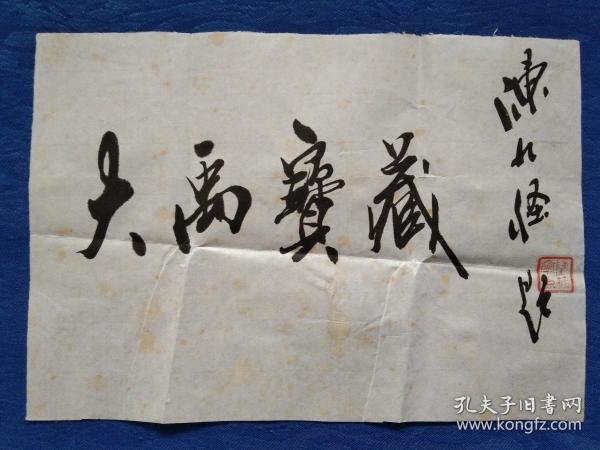 大禹寶藏
陳 题
孔夫子旧書网
www.kongfz.com